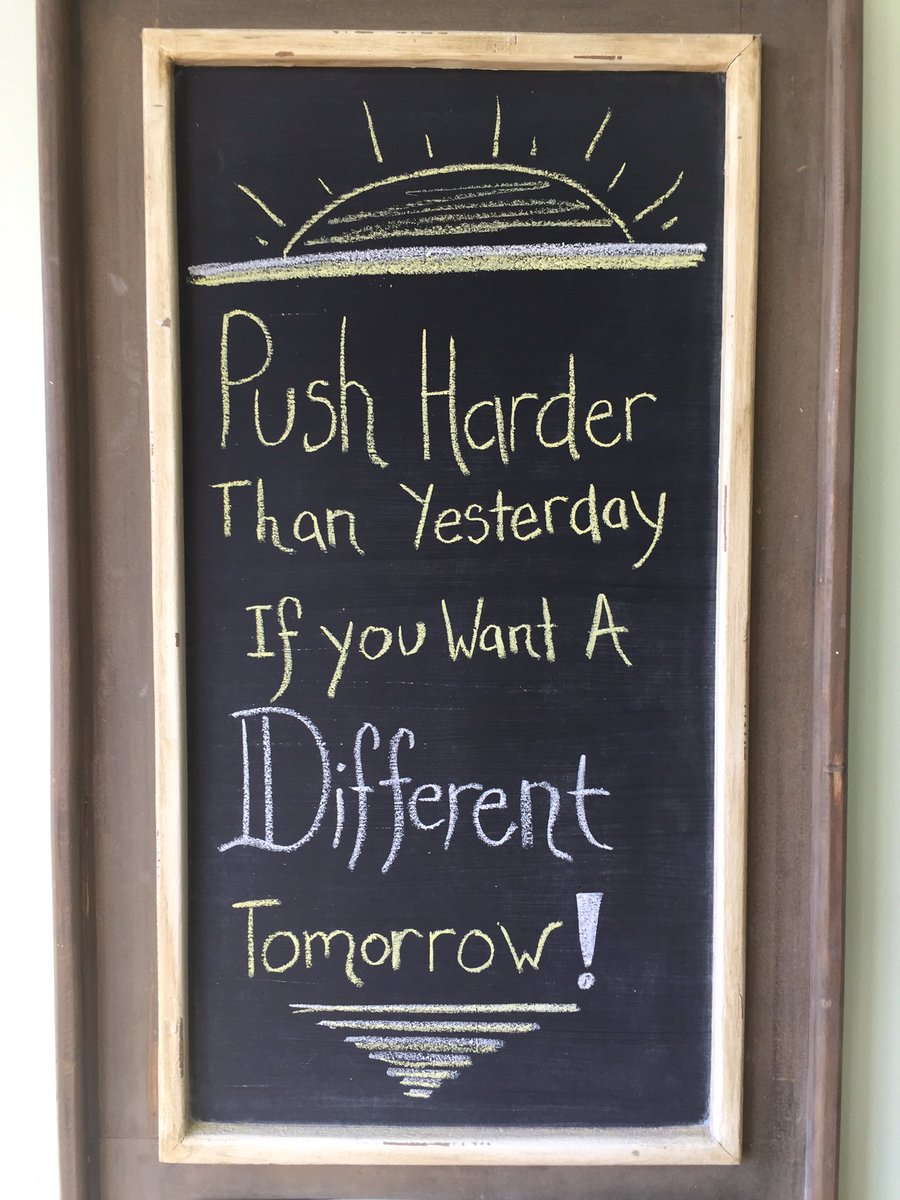 Push Harder
Than Yesterday
If you Want A
Different
Tomorrow!